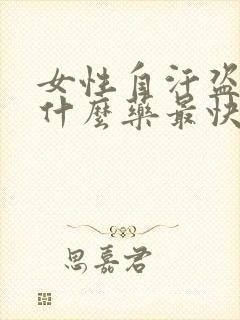 女性自汗盗
什麼藥最快
思嘉君